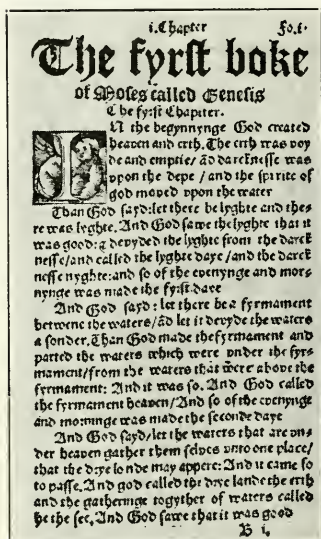 i. Chapter Fo. i.
The fyrst boke
of Moses called Genesis
The fyrst Chapiter.
IN the begynnynge God created
heaven and erth. The erth was voy
de and emptie/ ād darcknesse was
vpon the depe / and the spirite of
god moved vpon the water
Than God sayd: let there be lyghte and the-
re was lyghte. And God sawe the lyghte that it
was good: ⁊ devyded the lyghte from the darck
nesse/and called the lyghte daye /and the darck
nesse nyghte: and so of the evenynge and mor-
nynge was made the fyrst daye
And God sayd : let there be a fyrmament
betwene the waters/ād let it devyde the waters
a sonder. Than God made the fyrmament and
parted the waters which were vnder the fyr-
mament/from the waters that were above the
fyrmament: And it was so. And God called
the fyrmament heaven/And so of the evenynge
and morninge was made the seconde daye
And God sayd/let the waters that are vn-
der heaven gather them selves vnto one place/
that the drye londe may appere: And it came so
to passe. And god called the drye lande the erth
and the gatheringe togyther of waters called
he the see. And God sawe that it was good
B i.